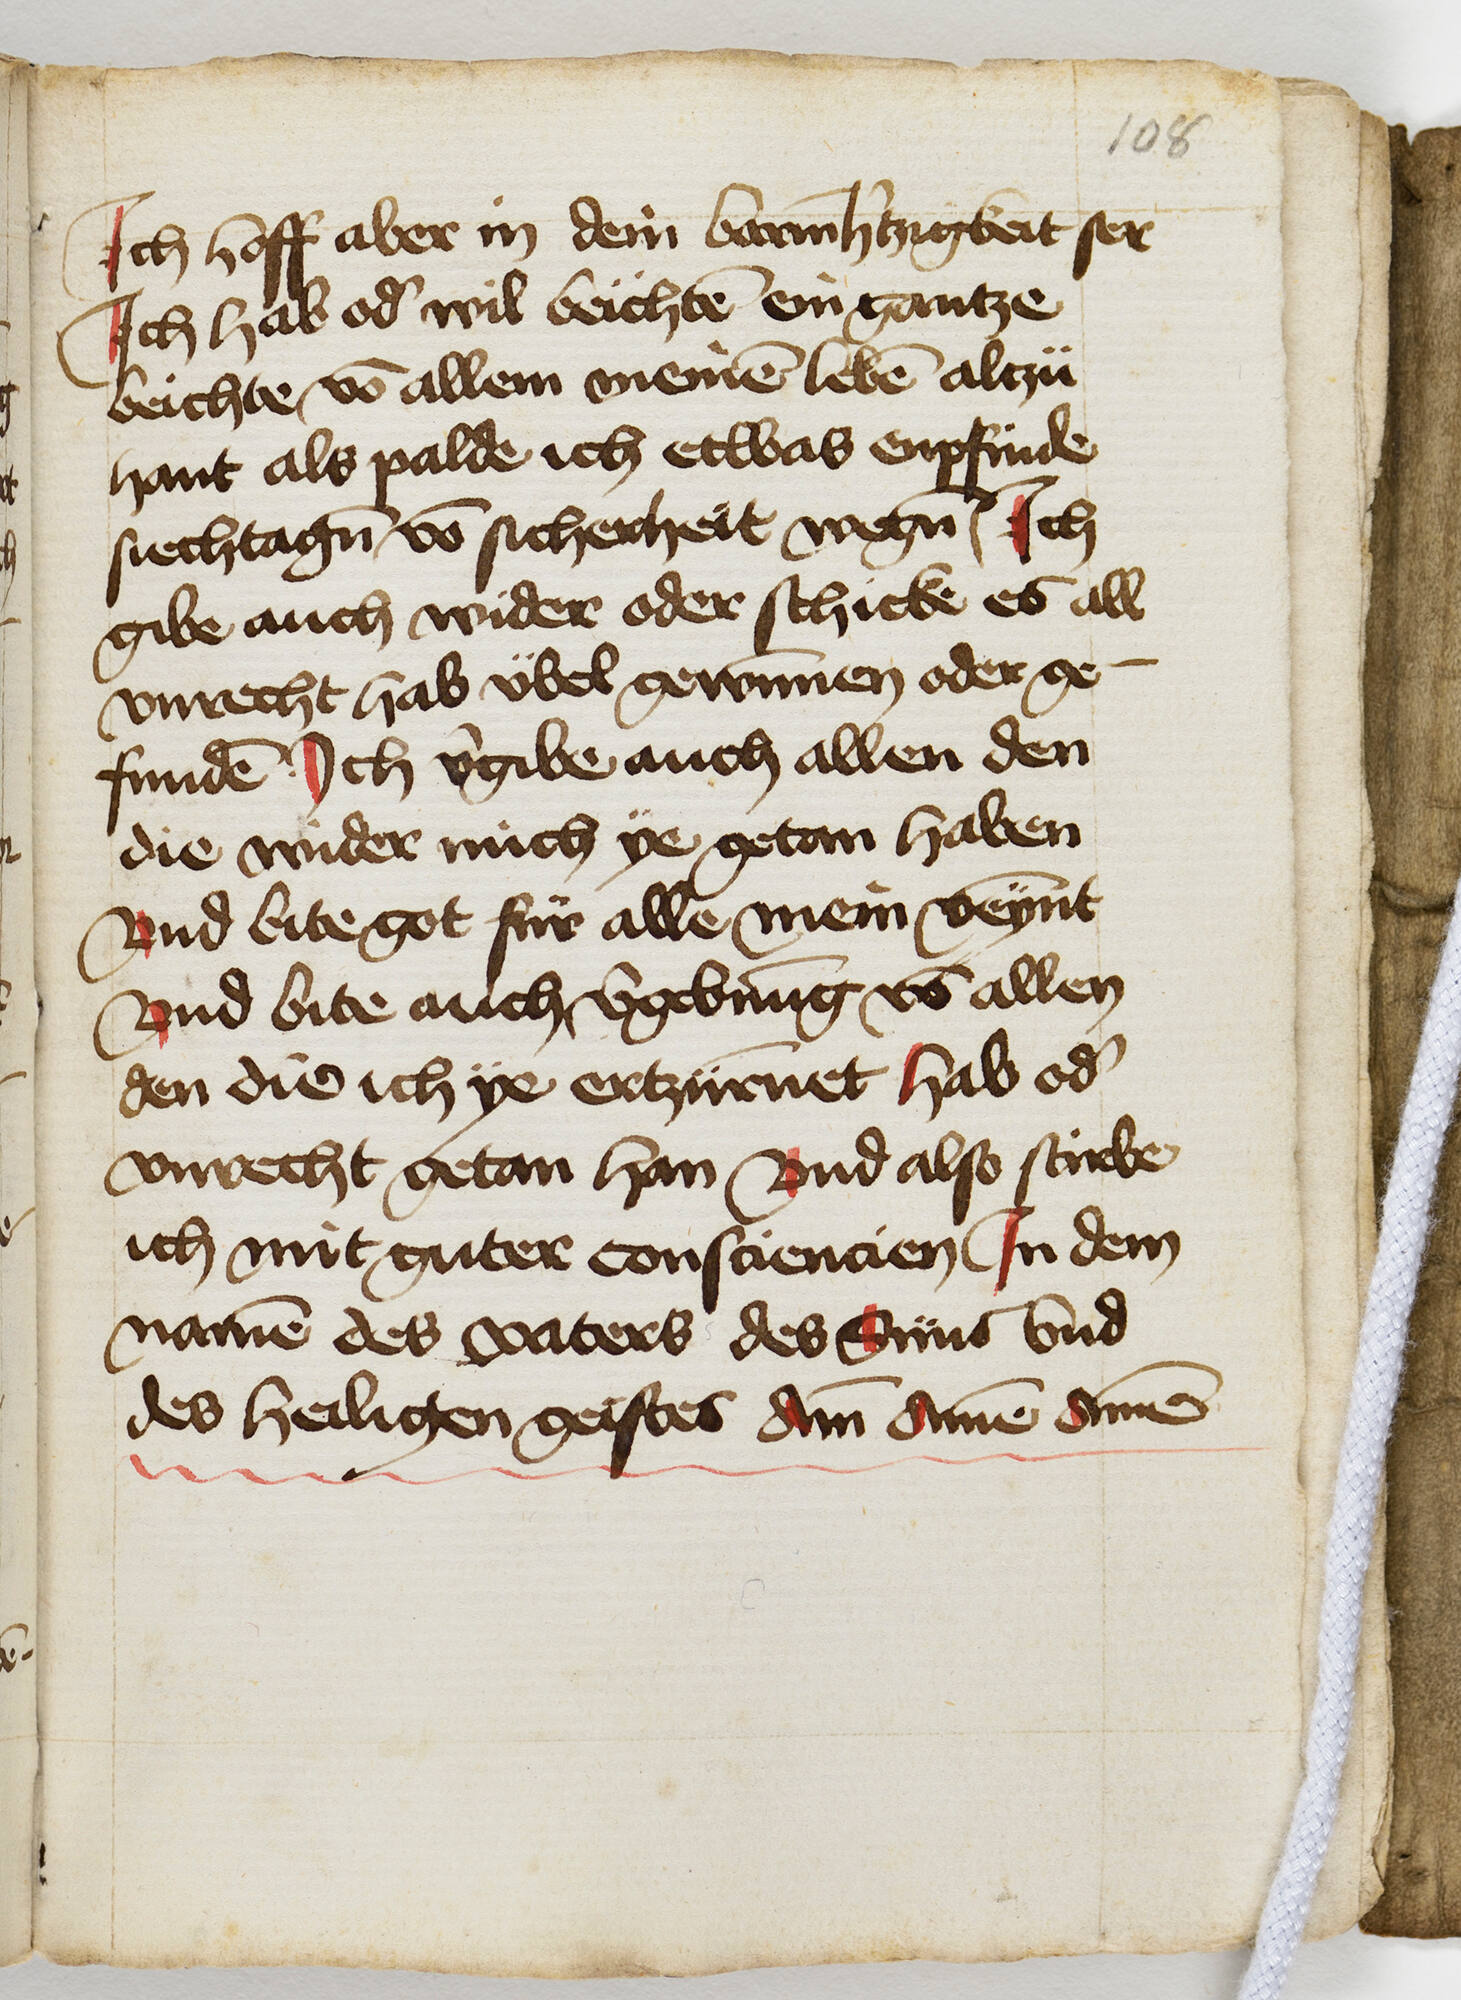 108
Ich hoff aber in dein barmh'tzigkeit ser
Ich hab od' wil beichtē ein gantze
beichte vō allem meinē lebē alczü
hant als palde ich etwas enpfinde
siechtagn̄ vō sicherheit wegn̄ Ich
gibe auch wider oder schicke es all
vnrecht hab übel gewunnen oder ge-
fundē Ich v'gibe auch allen den
die wider mich ÿe getan haben
Vnd bite got für alle mein veÿnt
Vnd bite auch v'gebnūg vō allen
den die ich ÿe ertzürnet hab od'
vnrecht getan han Vnd also stirbe
ich mit guter consciencien In dem
namē des vaters des Süns vnd
des heiligen geistes Am̄ Amē Amē